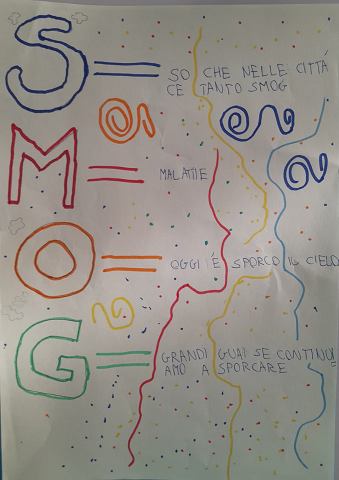 S = SO CHE NELLE CITTÁ
CE TANTO SMOG
M = MALATIE
O = OGGI É SPORCO IL CIELO
G = GRANDI GUAI SE CONTINUI
AMO A SPORCARE